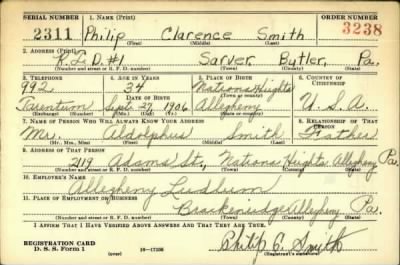 SERIAL NUMBER 1. NAME (Print) ORDER NUMBER
2311 Philip Clarence Smith 3238
(First) (Middle) (Last)
2. ADDRESS (Print)
R.F.D. #1 Sarver, Butler, Pa.
(Number and street or R. F. D. number) (Town) (County) (State)
3. TELEPHONE 4. AGE IN YEARS 5. PLACE OF BIRTH 6. COUNTRY OF CITIZENSHIP
992 34 Natrona Heights
DATE OF BIRTH
Tarentum Sept. 27, 1906 Allegheny U.S.A.
(Exchange) (Number) (Mo.) (Day) (Yr.) (State or country)
7. NAME OF PERSON WHO WILL ALWAYS KNOW YOUR ADDRESS 8. RELATIONSHIP OF THAT PERSON
Mr. Aldolphus Smith Father
(Mr., Mrs., Miss) (First) (Middle) (Last)
9. ADDRESS OF THAT PERSON
2119 Adams St., Natrona Heights Allegheny Pa.
(Number and street or R. F. D. number) (Town) (County) (State)
10. EMPLOYER'S NAME
Allegheny Ludlum
11. PLACE OF EMPLOYMENT OR BUSINESS
Brackenridge Allegheny Pa.
(Number and street or R. F. D. number) (Town) (County) (State)
I AFFIRM THAT I HAVE VERIFIED ABOVE ANSWERS AND THAT THEY ARE TRUE.
REGISTRATION CARD
D. S. S. Form 1 (over) 16—17105 Philip C. Smith